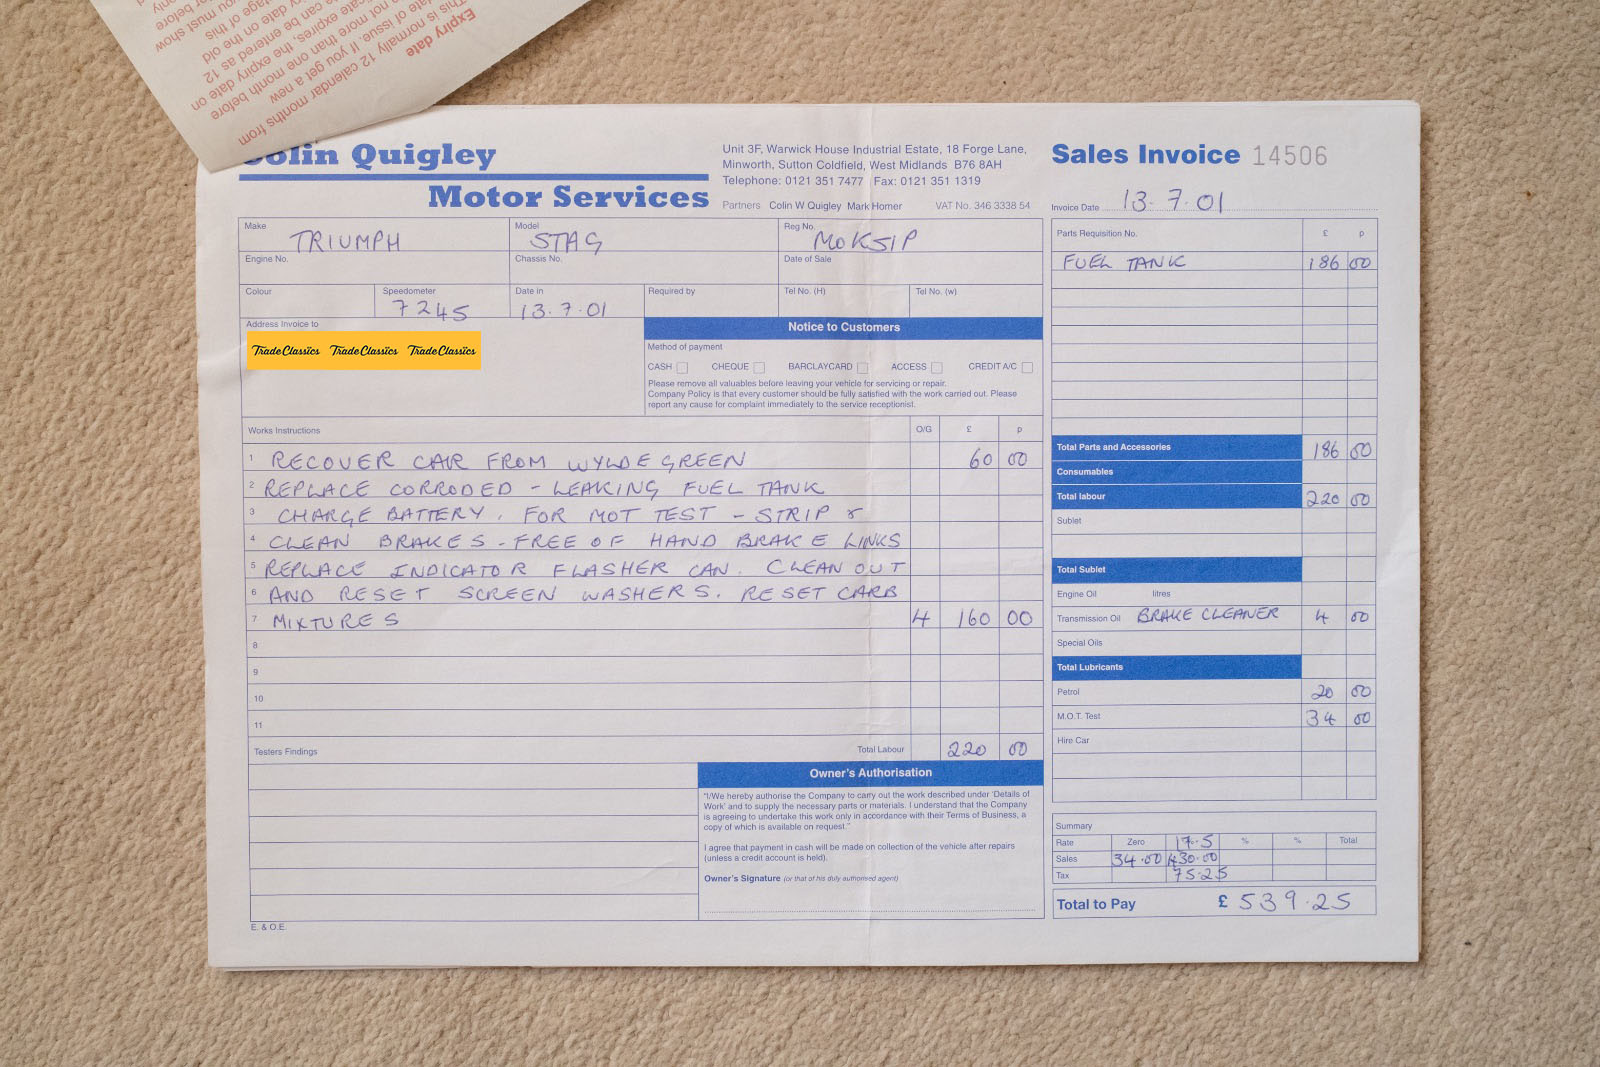 Expiry date
This is normally 12 calendar months from
date of issue. If you get a new
not more than one month before
expires, the expiry date on
can be entered as 12
date on the old
of this
you must show
Colin Quigley
Motor Services
Unit 3F, Warwick House Industrial Estate, 18 Forge Lane,
Minworth, Sutton Coldfield, West Midlands B76 8AH
Telephone: 0121 351 7477 Fax: 0121 351 1319
Partners Colin W Quigley Mark Horner VAT No. 346 3338 54
Sales Invoice 14506
Invoice Date 13.7.01
Make TRIUMPH Model STAG Reg No. MOK51P
Engine No. Chassis No. Date of Sale
Colour Speedometer 7245 Date in 13.7.01 Required by Tel No. (H) Tel No. (w)
Address Invoice to
TradeClassics TradeClassics TradeClassics
Notice to Customers
Method of payment
CASH CHEQUE BARCLAYCARD ACCESS CREDIT A/C
Please remove all valuables before leaving your vehicle for servicing or repair.
Company Policy is that every customer should be fully satisfied with the work carried out. Please
report any cause for complaint immediately to the service receptionist.
Works Instructions O/G £ p
1 RECOVER CAR FROM WYLDE GREEN 60 00
2 REPLACE CORRODED - LEAKING FUEL TANK
3 CHARGE BATTERY. FOR MOT TEST - STRIP &
4 CLEAN BRAKES - FREE OF HAND BRAKE LINKS
5 REPLACE INDICATOR FLASHER CAN. CLEAN OUT
6 AND RESET SCREEN WASHERS. RESET CARB
7 MIXTURES 4 160 00
8
9
10
11
Testers Findings Total Labour 220 00
Owner's Authorisation
"I/We hereby authorise the Company to carry out the work described under 'Details of
Work' and to supply the necessary parts or materials. I understand that the Company
is agreeing to undertake this work only in accordance with their Terms of Business, a
copy of which is available on request."
I agree that payment in cash will be made on collection of the vehicle after repairs
(unless a credit account is held).
Owner's Signature (or that of his duly authorised agent)
E. & O.E.
Parts Requisition No. £ p
FUEL TANK 186 00
Total Parts and Accessories 186 00
Consumables
Total labour 220 00
Sublet
Total Sublet
Engine Oil litres
Transmission Oil BRAKE CLEANER 4 00
Special Oils
Total Lubricants
Petrol 20 00
M.O.T. Test 34 00
Hire Car
Summary
Rate Zero 17.5 % % Total
Sales 34.00 430.00
Tax 75.25
Total to Pay £ 539.25